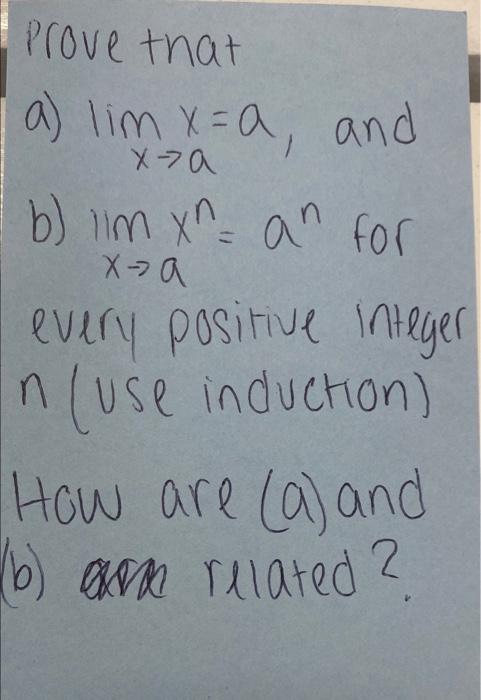 Prove that
a) lim x = a, and
x→a
b) lim xⁿ = aⁿ for
x→a
every positive integer
n (use induction)
How are (a) and
(b) related?